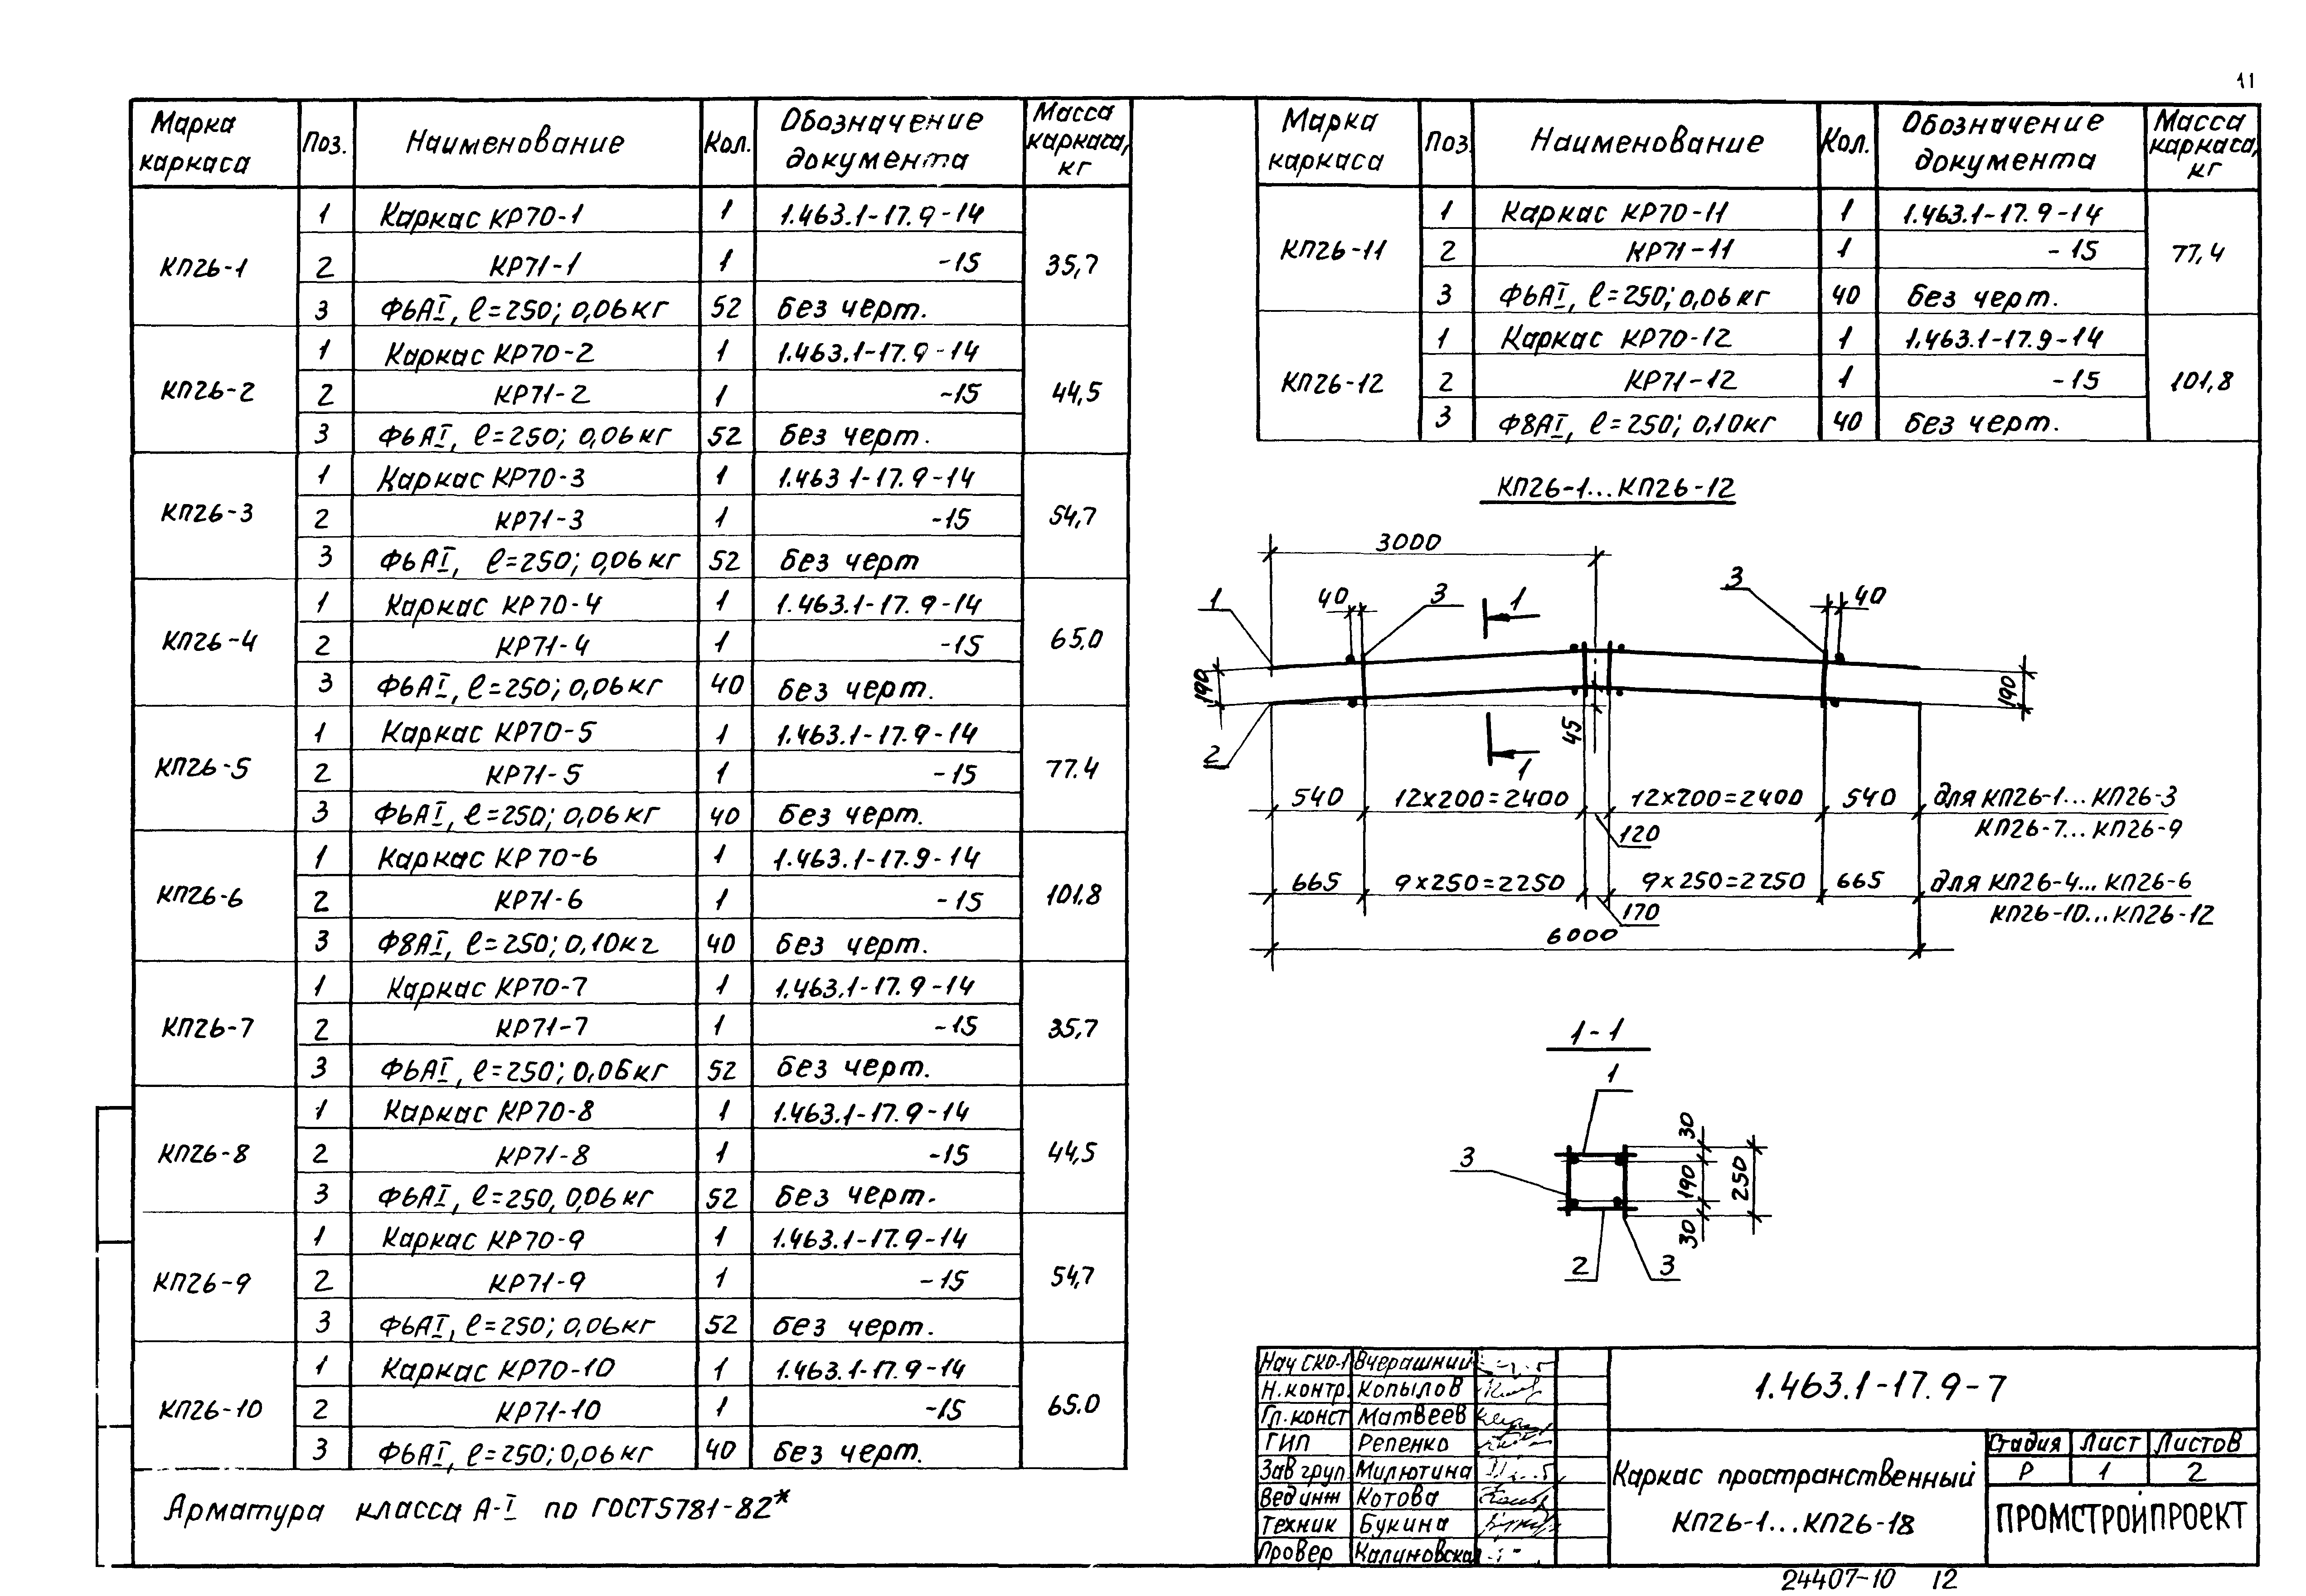 11
Марка каркаса Поз. Наименование Кол. Обозначение документа Масса каркаса, кг
КП26-1 35,7
1 Каркас КР70-1 1 1.463.1-17.9-14
2 КР71-1 1 -15
3 Ф6АI, ℓ=250; 0,06кг 52 без черт.
КП26-2 44,5
1 Каркас КР70-2 1 1.463.1-17.9-14
2 КР71-2 1 -15
3 Ф6АI, ℓ=250; 0,06кг 52 без черт.
КП26-3 54,7
1 Каркас КР70-3 1 1.463 1-17.9-14
2 КР71-3 1 -15
3 Ф6АI, ℓ=250; 0,06кг 52 без черт
КП26-4 65,0
1 Каркас КР70-4 1 1.463.1-17.9-14
2 КР71-4 1 -15
3 Ф6АI, ℓ=250; 0,06кг 40 без черт.
КП26-5 77.4
1 Каркас КР70-5 1 1.463.1-17.9-14
2 КР71-5 1 -15
3 Ф6АI, ℓ=250; 0,06кг 40 без черт.
КП26-6 101,8
1 Каркас КР70-6 1 1.463.1-17.9-14
2 КР71-6 1 -15
3 Ф8АI, ℓ=250; 0,10кг 40 без черт.
КП26-7 35,7
1 Каркас КР70-7 1 1.463.1-17.9-14
2 КР71-7 1 -15
3 Ф6АI, ℓ=250; 0,06кг 52 без черт.
КП26-8 44,5
1 Каркас КР70-8 1 1.463.1-17.9-14
2 КР71-8 1 -15
3 Ф6АI, ℓ=250, 0,06кг 52 без черт.
КП26-9 54,7
1 Каркас КР70-9 1 1.463.1-17.9-14
2 КР71-9 1 -15
3 Ф6АI, ℓ=250; 0,06кг 52 без черт.
КП26-10 65.0
1 Каркас КР70-10 1 1.463.1-17.9-14
2 КР71-10 1 -15
3 Ф6АI, ℓ=250; 0,06кг 40 без черт.
Арматура класса А-I по ГОСТ5781-82*
Марка каркаса Поз. Наименование Кол. Обозначение документа Масса каркаса, кг
КП26-11 77,4
1 Каркас КР70-11 1 1.463.1-17.9-14
2 КР71-11 1 -15
3 Ф6АI, ℓ=250; 0,06кг 40 без черт.
КП26-12 101,8
1 Каркас КР70-12 1 1.463.1-17.9-14
2 КР71-12 1 -15
3 Ф8АI, ℓ=250; 0,10кг 40 без черт.
КП26-1...КП26-12
3000
1 40 3 1 3 40
190 190
45
2 1
540 12x200=2400 12x200=2400 540 для КП26-1...КП26-3
120 КП26-7...КП26-9
665 9x250=2250 9x250=2250 665 для КП26-4...КП26-6
170 КП26-10...КП26-12
6000
1-1
1
30
3 190 250
30
2 3
Нач СКО-1 Вчерашний
Н.контр. Копылов
Гл.конст Матвеев
ГИП Репенко
Зав груп Милютина
Вед инж Котова
Техник Букина
Провер Калиновская
1.463.1-17.9-7
Каркас пространственный
КП26-1...КП26-18
Стадия Лист Листов
Р 1 2
ПРОМСТРОЙПРОЕКТ
24407-10 12